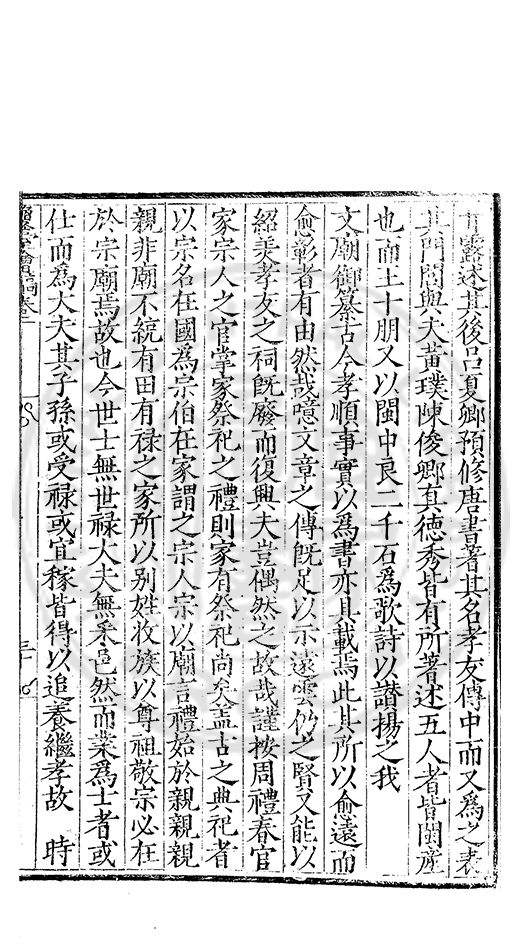 甘露述其後呂夏卿預修唐書著其名孝友傳中而又為之表
其門閭與夫黃璞陳俊卿真德秀皆有所著述五人者皆閩產
也而王十朋又以閩中良二千石為歌詩以讃揚之我
文廟御纂古今孝順事實以為書亦具載焉此其所以愈遠而
愈彰者有由然哉噫文章之傳既足以示遠雲仍之賢又能以
紹羙孝友之祠既廢而復興夫豈偶然之故哉謹按周禮春官
家宗人之官掌家祭祀之禮則家有祭祀尚矣盖古之典祀者
以宗名在國為宗伯在家謂之宗人宗以廟言禮始於親親親
親非廟不統有田有祿之家所以别姓收族以尊祖敬宗必在
於宗廟焉故也今世士無世禄大夫無釆邑然而業為士者或
仕而為大夫其子孫或受祿或宜稼皆得以追養繼孝故　時